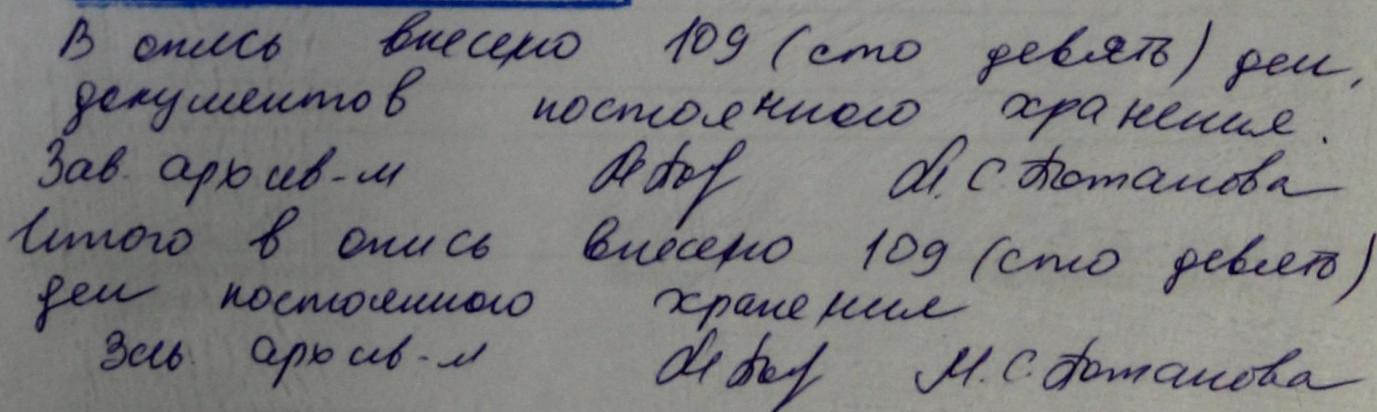 В опись внесено 109 (сто девять) дел,
документов постоянного хранения.
Зав. архив-м М. С. Потапова
Итого в опись внесено 109 (сто девять)
дел постоянного хранения
Зав. архив-м М. С. Потапова